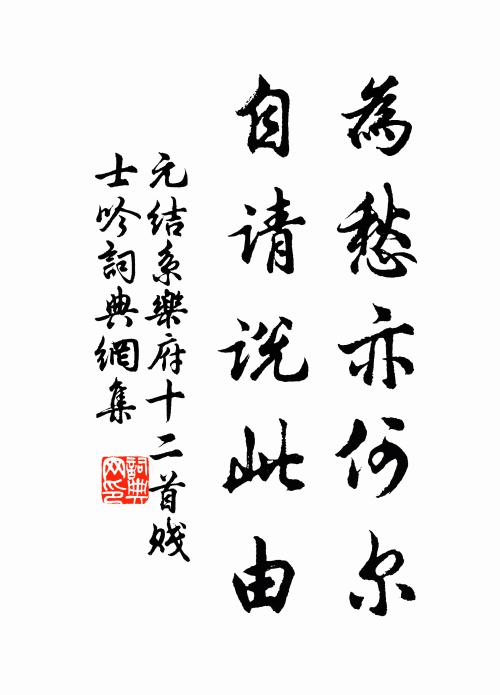 為愁亦何尔
自请説此由
元结系樂府十二首贱
士吟詞典網集
詞典
网印